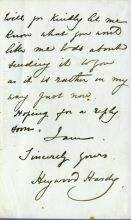 Will you kindly let me
know what you would
like me to do about
sending it to you
as it is rather in my
way just now
Hoping for a reply
soon.
I am
Sincerely yours
Heywood Hardy